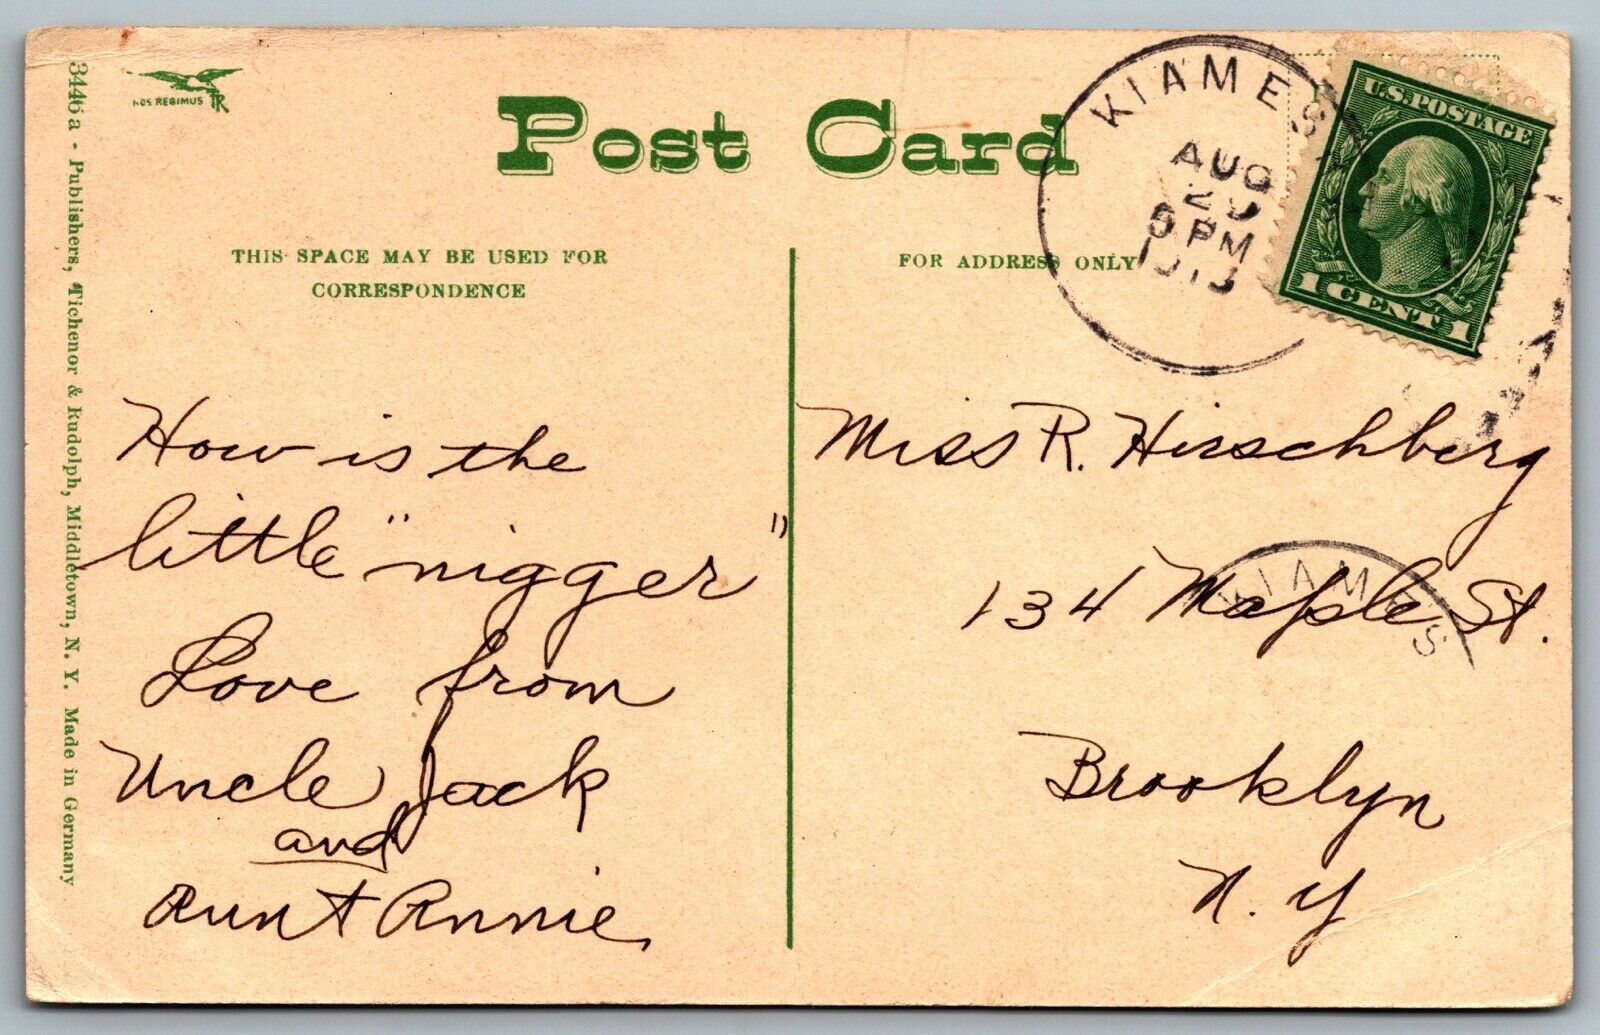 3446a - Publishers, Tichenor & Rudolph, Middletown, N. Y. Made in Germany
NOS REGIMUS
Post Card
THIS SPACE MAY BE USED FOR
CORRESPONDENCE
FOR ADDRESS ONLY
KIAMES
AUG
5 PM
1913
U.S. POSTAGE
1 CENT 1
How is the
little "nigger"
Love from
Uncle Jack
and
Aunt Annie
Miss R. Hirschberg
134 Maple St.
KIAMES
Brooklyn
N. Y